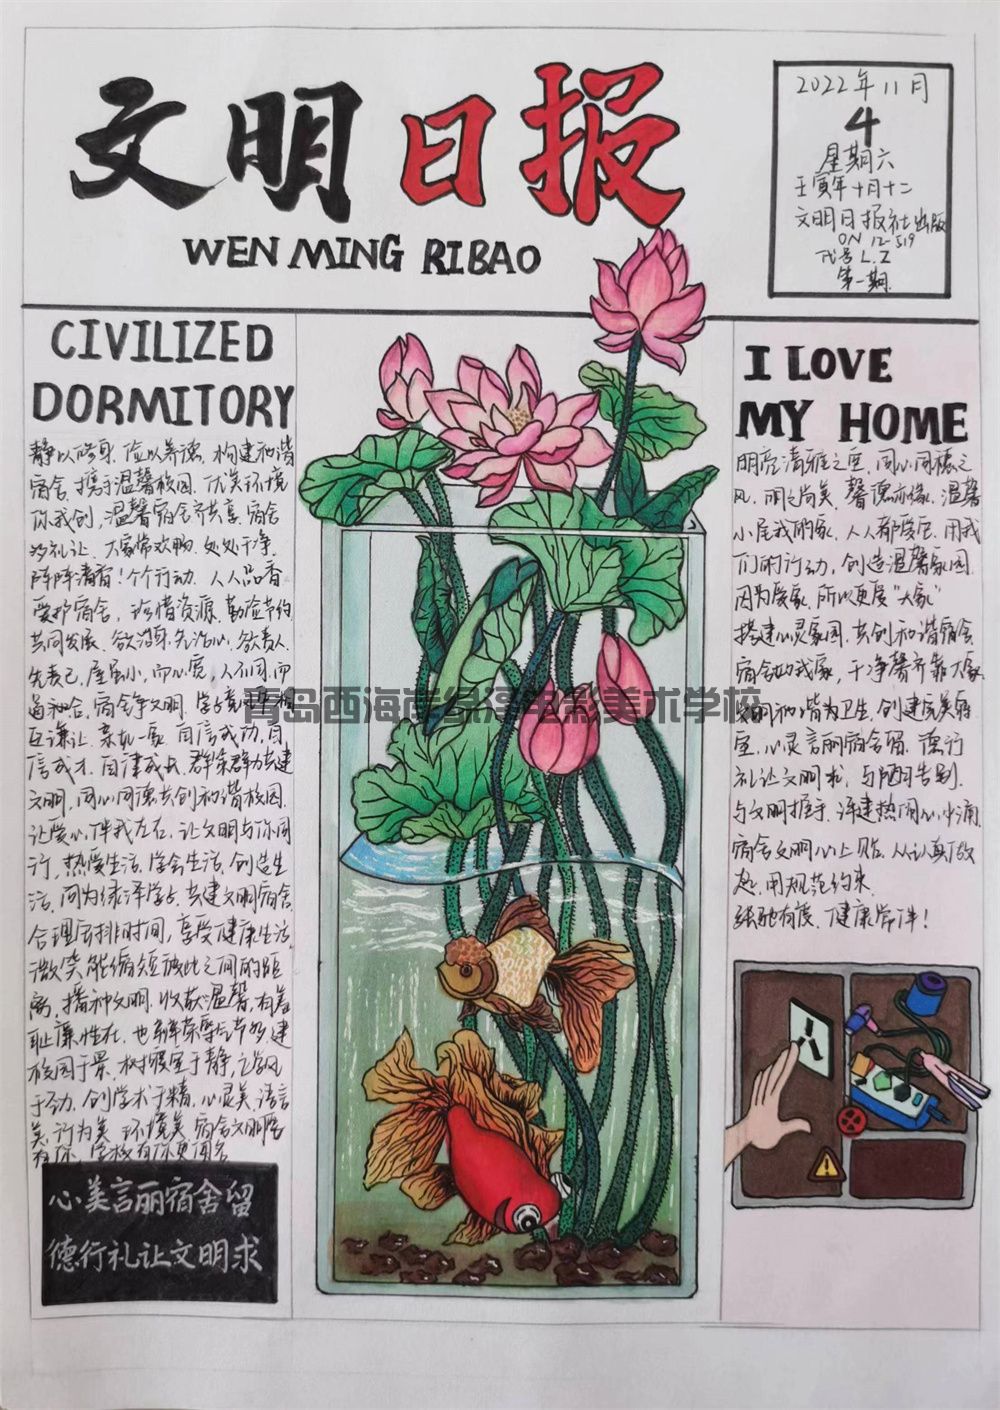 文明日报
WEN MING RIBAO
2022年11月
4
星期六
壬寅年十月十二
文明日报社出版
ON 12-519
代号 L.Z
第一期.
CIVILIZED
DORMITORY
静以修身.俭以养德.构建和谐
宿舍.携手温馨校园.优美环境
你我创,温馨宿舍齐共享.宿舍
多礼让.大家常欢畅.处处干净.
阵阵清香!个个行动.人人品香
爱护宿舍,珍惜资源.勤俭节约
共同发展.欲治身.先治心,欲责人.
先责己,屋虽小,而心宽,人不同.而
互谦让.亲如一家 自信成功,自
信成才.自律成长.群策群力共建
文明.同心同德共创和谐校园.
让爱心伴我左右.让文明与你同
行,热爱生活.学会生活.创造生
活.同为绿泽学子.共建文明宿舍.
合理安排时间,享受健康生活.
微笑能缩短彼此之间的距
离,播种文明.收获温馨.有羞
校园于景.树寝室于静,
于动.创学术于精.心灵美.语言
美.行为美 环境美.宿舍文明
心美言丽宿舍留
德行礼让文明求
I LOVE
MY HOME
明亮清雅之室.同心同德之
风.雨之尚美.馨德亦缘.温馨
小屋我的家.人人都爱它.用我
们的行动,创造温馨家园.
因为爱家.所以更爱“大家”
搭建心灵家园.共创和谐宿舍
宿舍如我家,干净馨齐靠大家
文明和谐为卫生.创建完美寝
室.心灵言丽宿舍留.德行
礼让文明求,与陋习告别.
与文明握手.
宿舍文明心上贴.从认真做
起.用规范约束.
张弛有度.健康常伴!
青岛西海岸绿泽电影美术学校